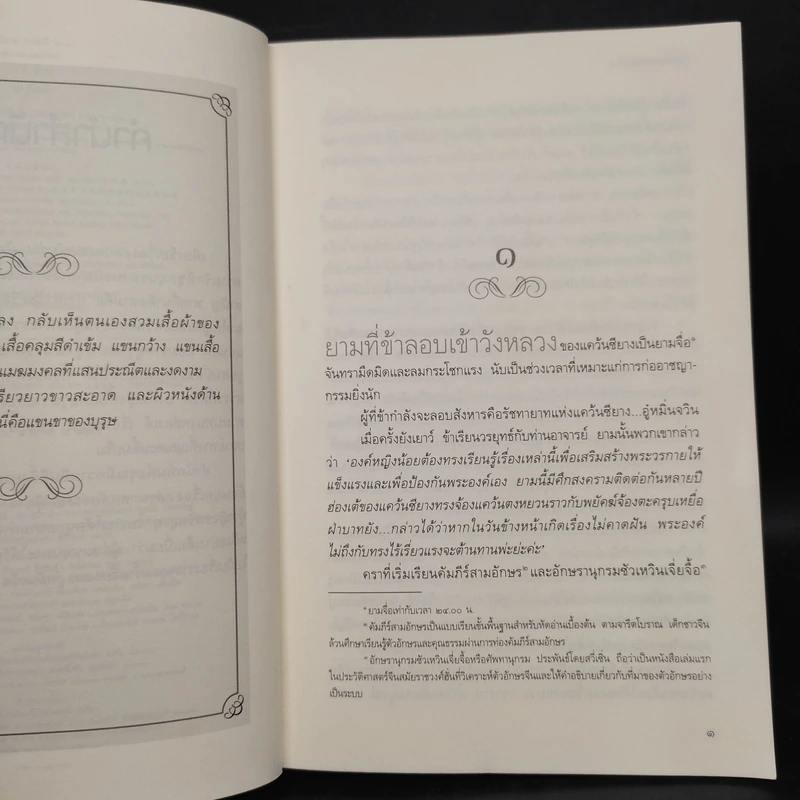 ลง กลับเห็นตนเองสวมเสื้อผ้าของ
เสื้อคลุมสีดำเข้ม แขนกว้าง แขนเสื้อ
นเมฆมงคลที่แสนประณีตและงดงาม
รียวยาวขาวสะอาด และผิวหนังด้าน
นี่คือแขนขาของบุรุษ
๑
ยามที่ข้าลอบเข้าวังหลวงของแคว้นซียางเป็นยามจื่อ๑
จันทรามืดมิดและลมกระโชกแรง นับเป็นช่วงเวลาที่เหมาะแก่การก่ออาชญา-
กรรมยิ่งนัก
ผู้ที่ข้ากำลังจะลอบสังหารคือรัชทายาทแห่งแคว้นซียาง...อู๋หมิ่นจวิน
เมื่อครั้งยังเยาว์ ข้าเรียนวรยุทธ์กับท่านอาจารย์ ยามนั้นพวกเขากล่าว
ว่า ‘องค์หญิงน้อยต้องทรงเรียนรู้เรื่องเหล่านี้เพื่อเสริมสร้างพระวรกายให้
แข็งแรงและเพื่อป้องกันพระองค์เอง ยามนี้มีศึกสงครามติดต่อกันหลายปี
ฮ่องเต้ของแคว้นซียางทรงจ้องแคว้นตงหยวนราวกับพยัคฆ์จ้องตะครุบเหยื่อ
ฝ่าบาทยัง...กล่าวได้ว่าหากในวันข้างหน้าเกิดเรื่องไม่คาดฝัน พระองค์
ไม่ถึงกับทรงไร้เรี่ยวแรงจะต้านทานพ่ะย่ะค่ะ’
คราที่เริ่มเรียนคัมภีร์สามอักษร๒ และอักษรานุกรมซัวเหวินเจี่ยจื้อ๓
๑ ยามจื่อเท่ากับเวลา ๒๔.๐๐ น.
๒ คัมภีร์สามอักษรเป็นแบบเรียนขั้นพื้นฐานสำหรับหัดอ่านเบื้องต้น ตามจารีตโบราณ เด็กชาวจีน
ล้วนศึกษาเรียนรู้ตัวอักษรและคุณธรรมผ่านการท่องคัมภีร์สามอักษร
๓ อักษรานุกรมซัวเหวินเจี่ยจื้อหรือศัพทานุกรม ประพันธ์โดยสวี่เซิ่น ถือว่าเป็นหนังสือเล่มแรก
ในประวัติศาสตร์จีนสมัยราชวงศ์ฮั่นที่วิเคราะห์ตัวอักษรจีนและให้คำอธิบายเกี่ยวกับที่มาของตัวอักษรอย่าง
เป็นระบบ
๑